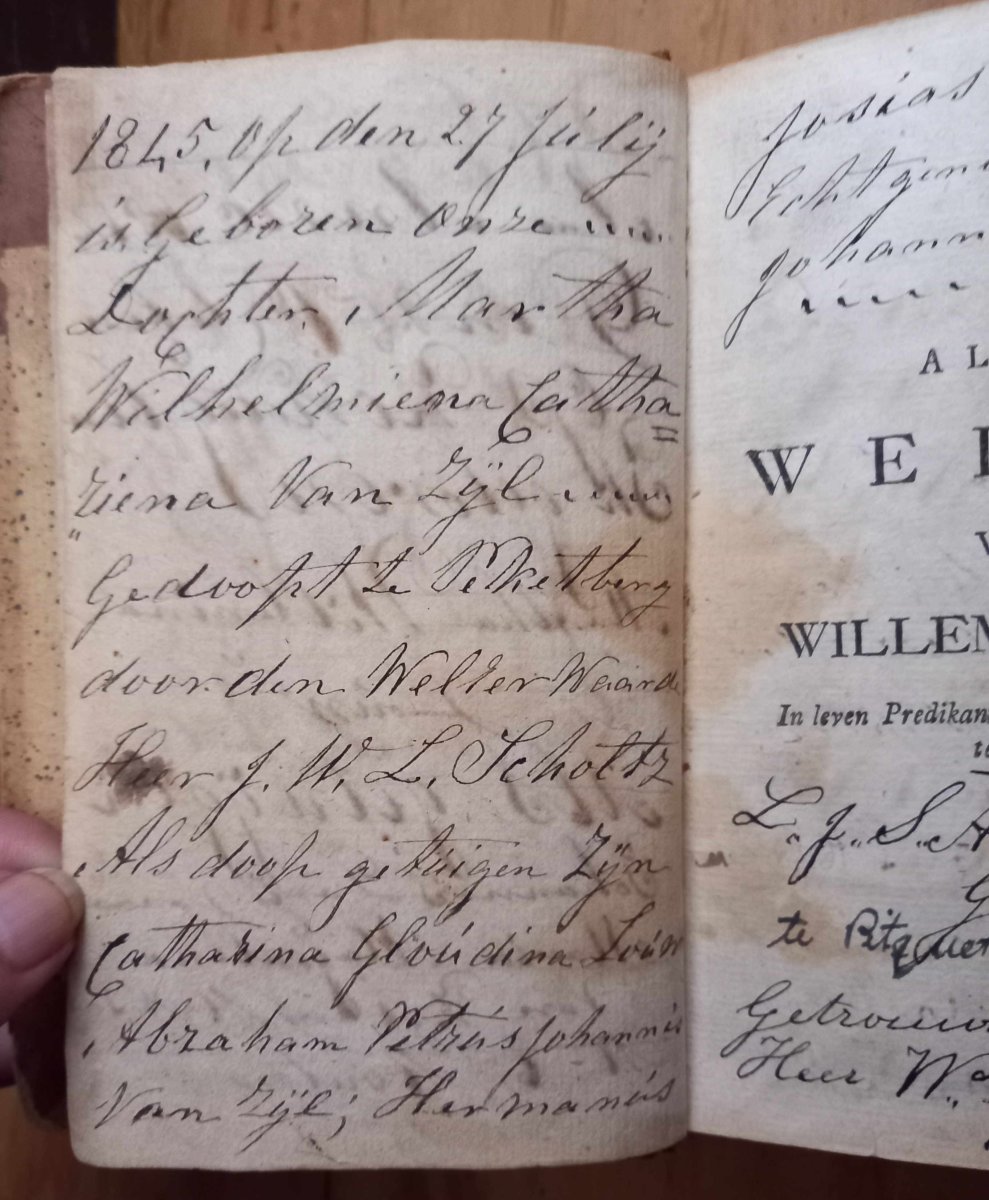 1845. Op den 27 Júlÿ
is Geboren Onze
Dochter, Martha
Wilhelmiena Catha=
"riena Van Zÿl
Gedoopt te P: Ketberg
door den WelEer Waarde
Heer J. W. L. Scholtz
Als doop getúigen Zÿn
Catharina Gloúdina Loúw
Abraham Petrús Johannis
Van Zÿl; Hermanús
Josias
Echtgen
Johann
A L
W E
V
WILLEM
In leven Predikan
te
L. J. S. A
G
te Pitquer
Getrouw
Heer W